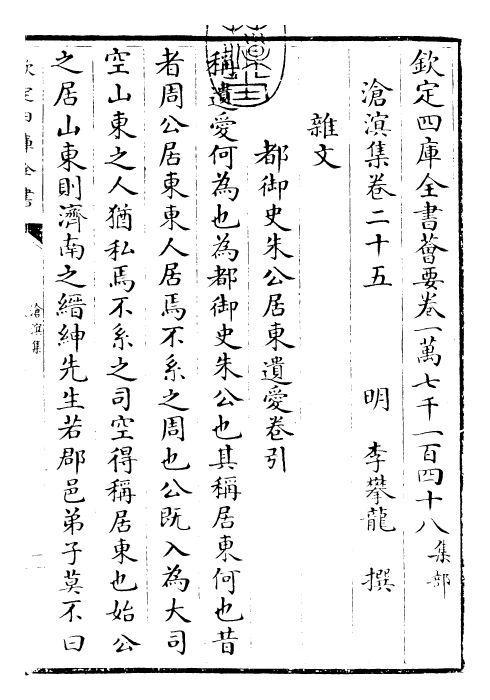 欽定四庫全書薈要卷一萬七千一百四十八集部
滄溟集卷二十五　明　李攀龍　撰
雜文
都御史朱公居東遺愛卷引
稱遺愛何為也為都御史朱公也其稱居東何也昔
者周公居東東人居焉不系之周也公既入為大司
空山東之人猶私焉不系之司空得稱居東也始公
之居山東則濟南之縉紳先生若郡邑弟子莫不曰
欽定四庫全書
滄溟集
一